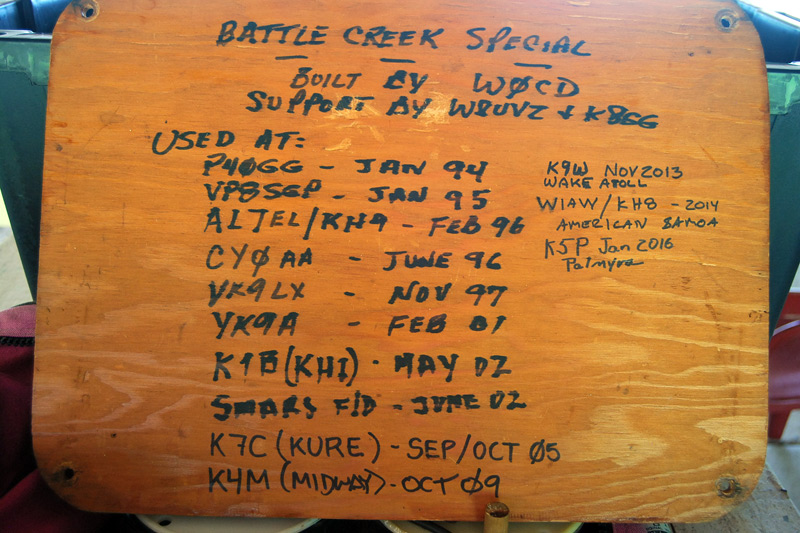 BATTLE CREEK SPECIAL
BUILT BY WØCD
SUPPORT BY W8UVZ + K8GG
USED AT:
P4ØGG - JAN 94
VP8SGP - JAN 95
AL7EL/KH9 - FEB 96
CYØAA - JUNE 96
VK9LX - NOV 97
YK9A - FEB 01
K1B (KH1) - MAY 02
SMARS F/D - JUNE 02
K7C (KURE) - SEP/OCT Ø5
K4M (MIDWAY) - OCT Ø9
K9W NOV 2013
WAKE ATOLL
W1AW/KH8 - 2014
AMERICAN SAMOA
K5P Jan 2016
Palmyra